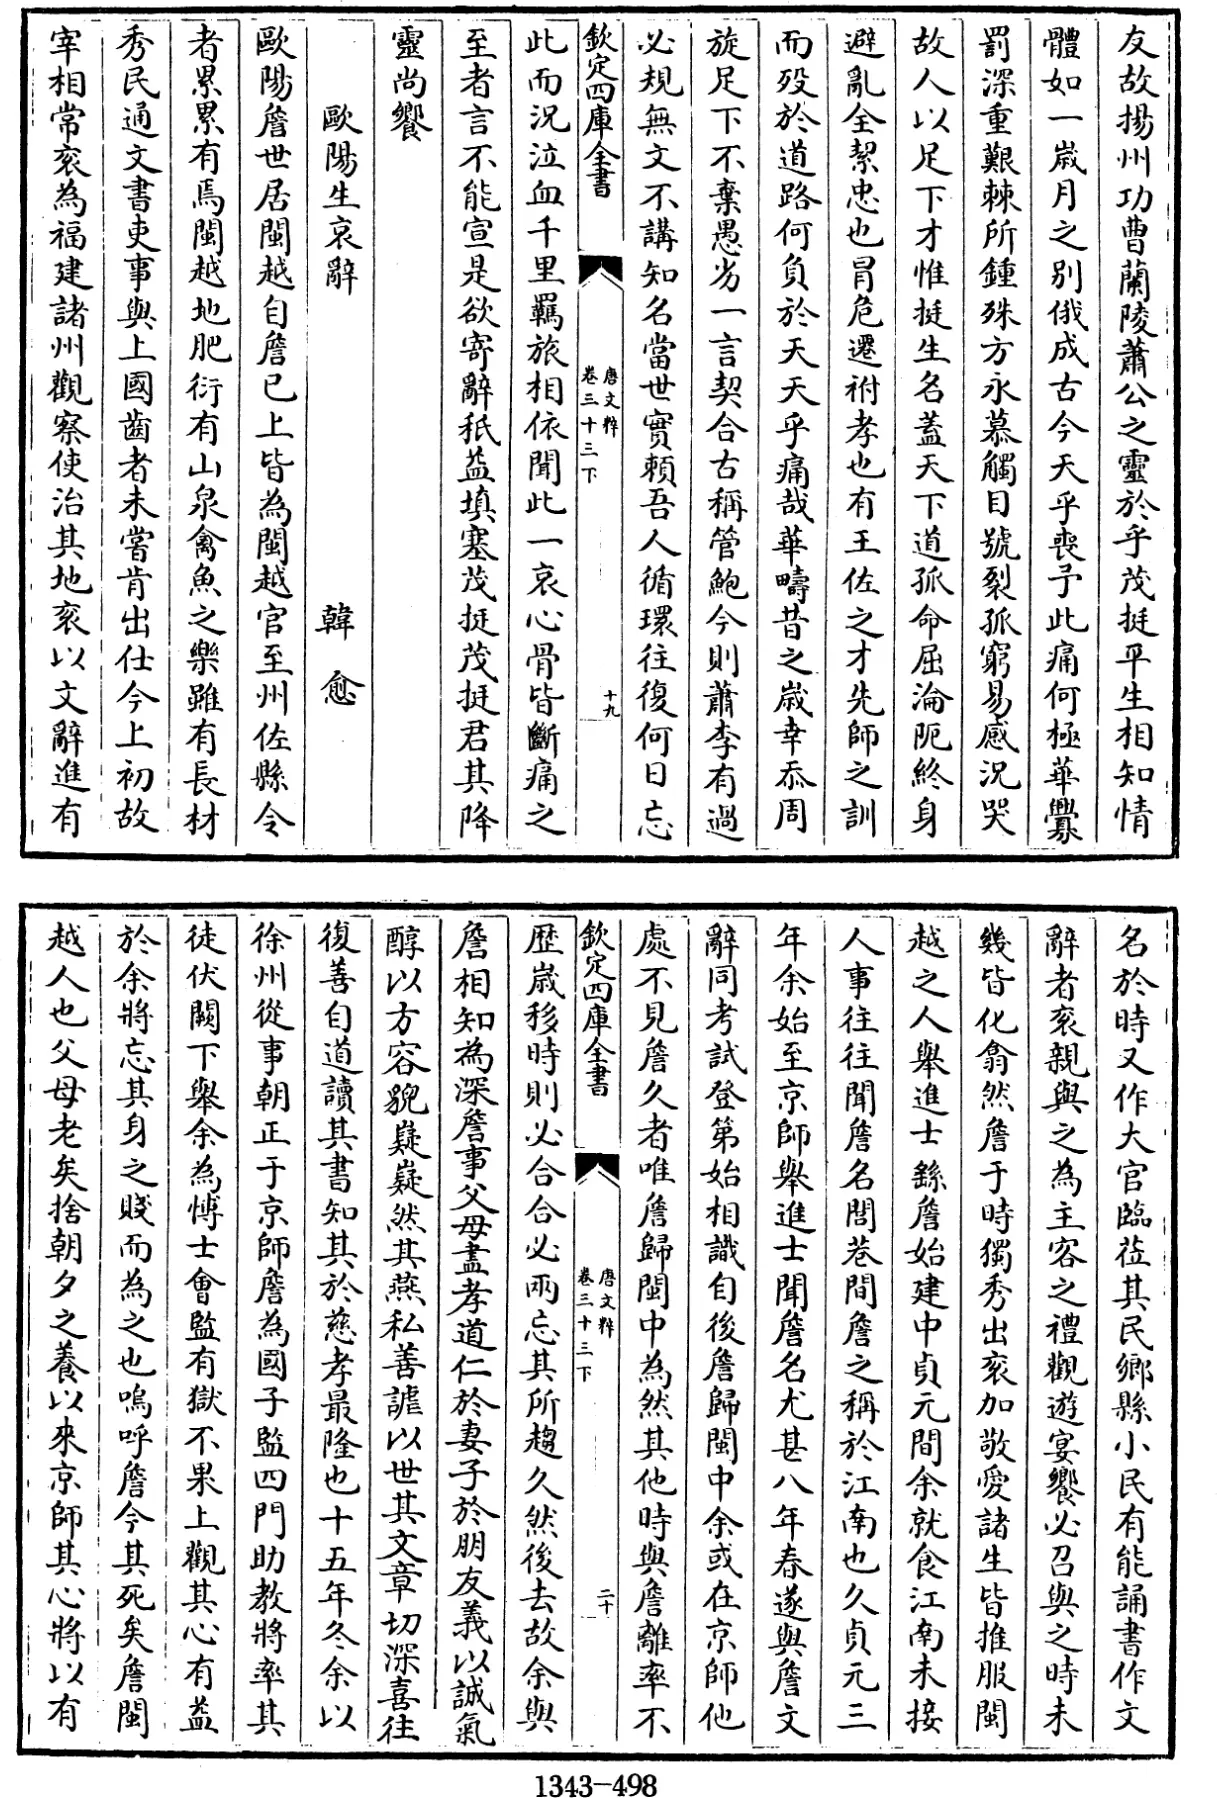 友故揚州功曹蘭陵蕭公之靈於乎茂挺平生相知情
體如一嵗月之别俄成古今天乎喪予此痛何極華釁
罰深重艱棘所鍾殊方永慕觸目號裂孤窮易感況哭
故人以足下才惟挺生名蓋天下道孤命屈淪阨終身
避亂全絜忠也冒危遷祔孝也有王佐之才先師之訓
而歿於道路何負於天天乎痛哉華疇昔之嵗幸忝周
旋足下不棄愚劣一言契合古稱管鮑今則蕭李有過
必規無文不講知名當世實頼吾人循環往復何日忘
欽定四庫全書
唐文粹
卷三十三下
十九
此而況泣血千里羈旅相依聞此一哀心骨皆斷痛之
至者言不能宣是欲寄辭秖益填塞茂挺茂挺君其降
靈尚饗
歐陽生哀辭 韓愈
歐陽詹世居閩越自詹已上皆為閩越官至州佐縣令
者累累有焉閩越地肥衍有山泉禽魚之樂雖有長材
秀民通文書吏事與上國齒者未嘗肯出仕今上初故
宰相常衮為福建諸州觀察使治其地衮以文辭進有
名於時又作大官臨莅其民鄉縣小民有能誦書作文
辭者衮親與之為主客之禮觀遊宴饗必召與之時未
幾皆化翕然詹于時獨秀出衮加敬愛諸生皆推服閩
越之人舉進士繇詹始建中貞元間余就食江南未接
人事往往聞詹名閭巷間詹之稱於江南也久貞元三
年余始至京師舉進士聞詹名尤甚八年春遂與詹文
辭同考試登第始相識自後詹歸閩中余或在京師他
處不見詹久者唯詹歸閩中為然其他時與詹離率不
欽定四庫全書
唐文粹
卷三十三下
二十
歴嵗移時則必合合必兩忘其所趨久然後去故余與
詹相知為深詹事父母盡孝道仁於妻子於朋友義以誠氣
醇以方容貌嶷嶷然其燕私善謔以世其文章切深喜往
復善自道讀其書知其於慈孝最隆也十五年冬余以
徐州從事朝正于京師詹為國子監四門助教將率其
徒伏闕下舉余為愽士會監有獄不果上觀其心有益
於余將忘其身之賤而為之也嗚呼詹今其死矣詹閩
越人也父母老矣捨朝夕之養以來京師其心將以有
1343-498